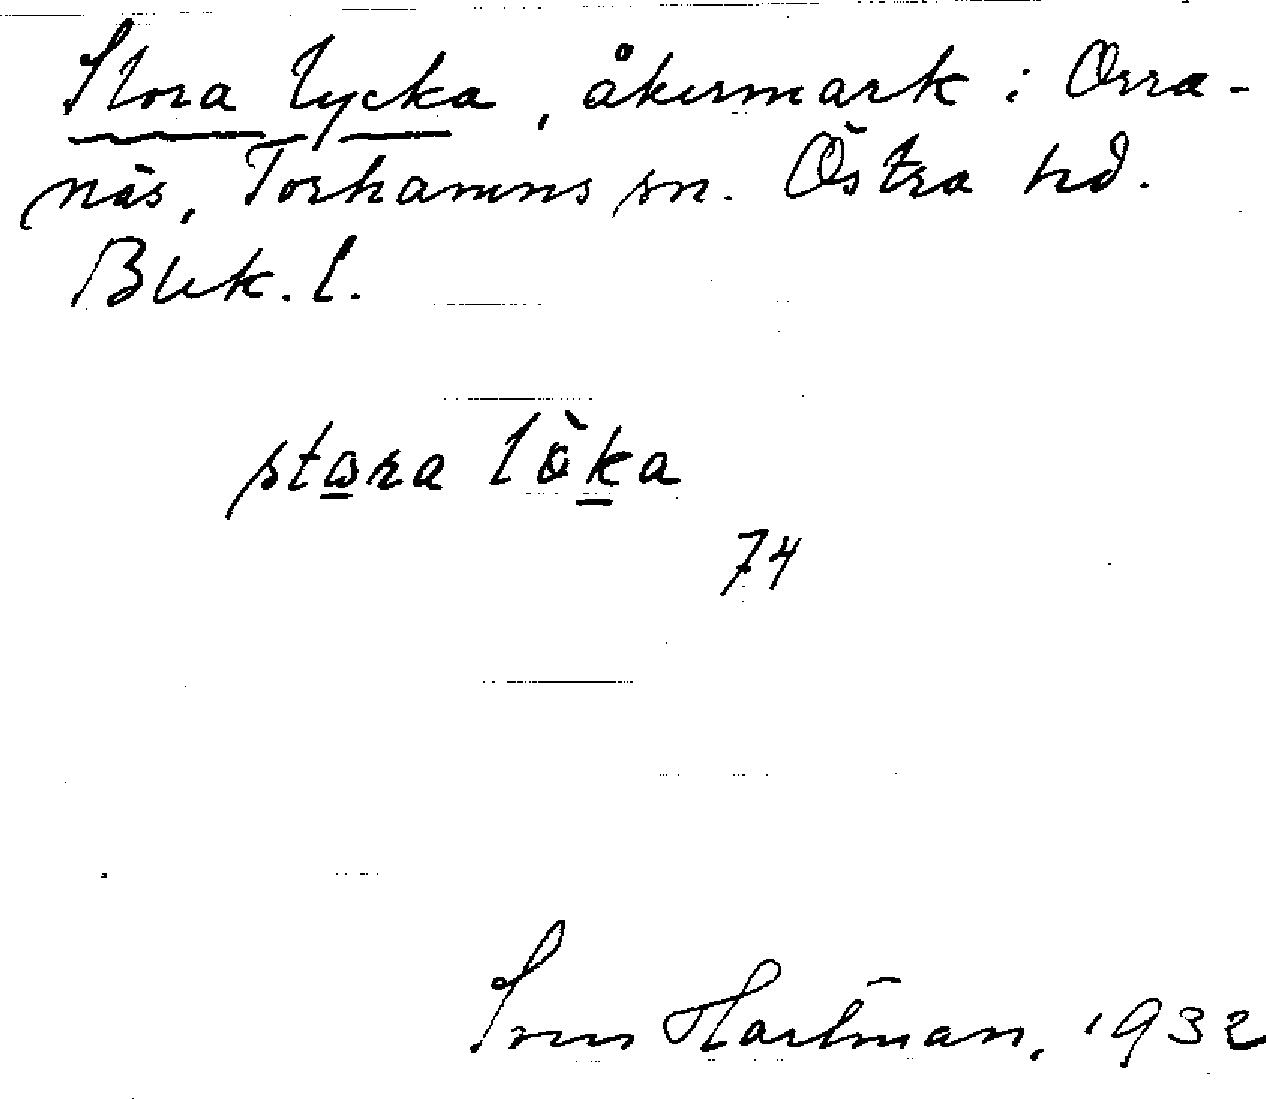 Stora lycka, åkermark i Orra-
näs, Torhamns sn. Östra hd.
Blek. l.
stora lòka
74
Sven Hartman, 1932